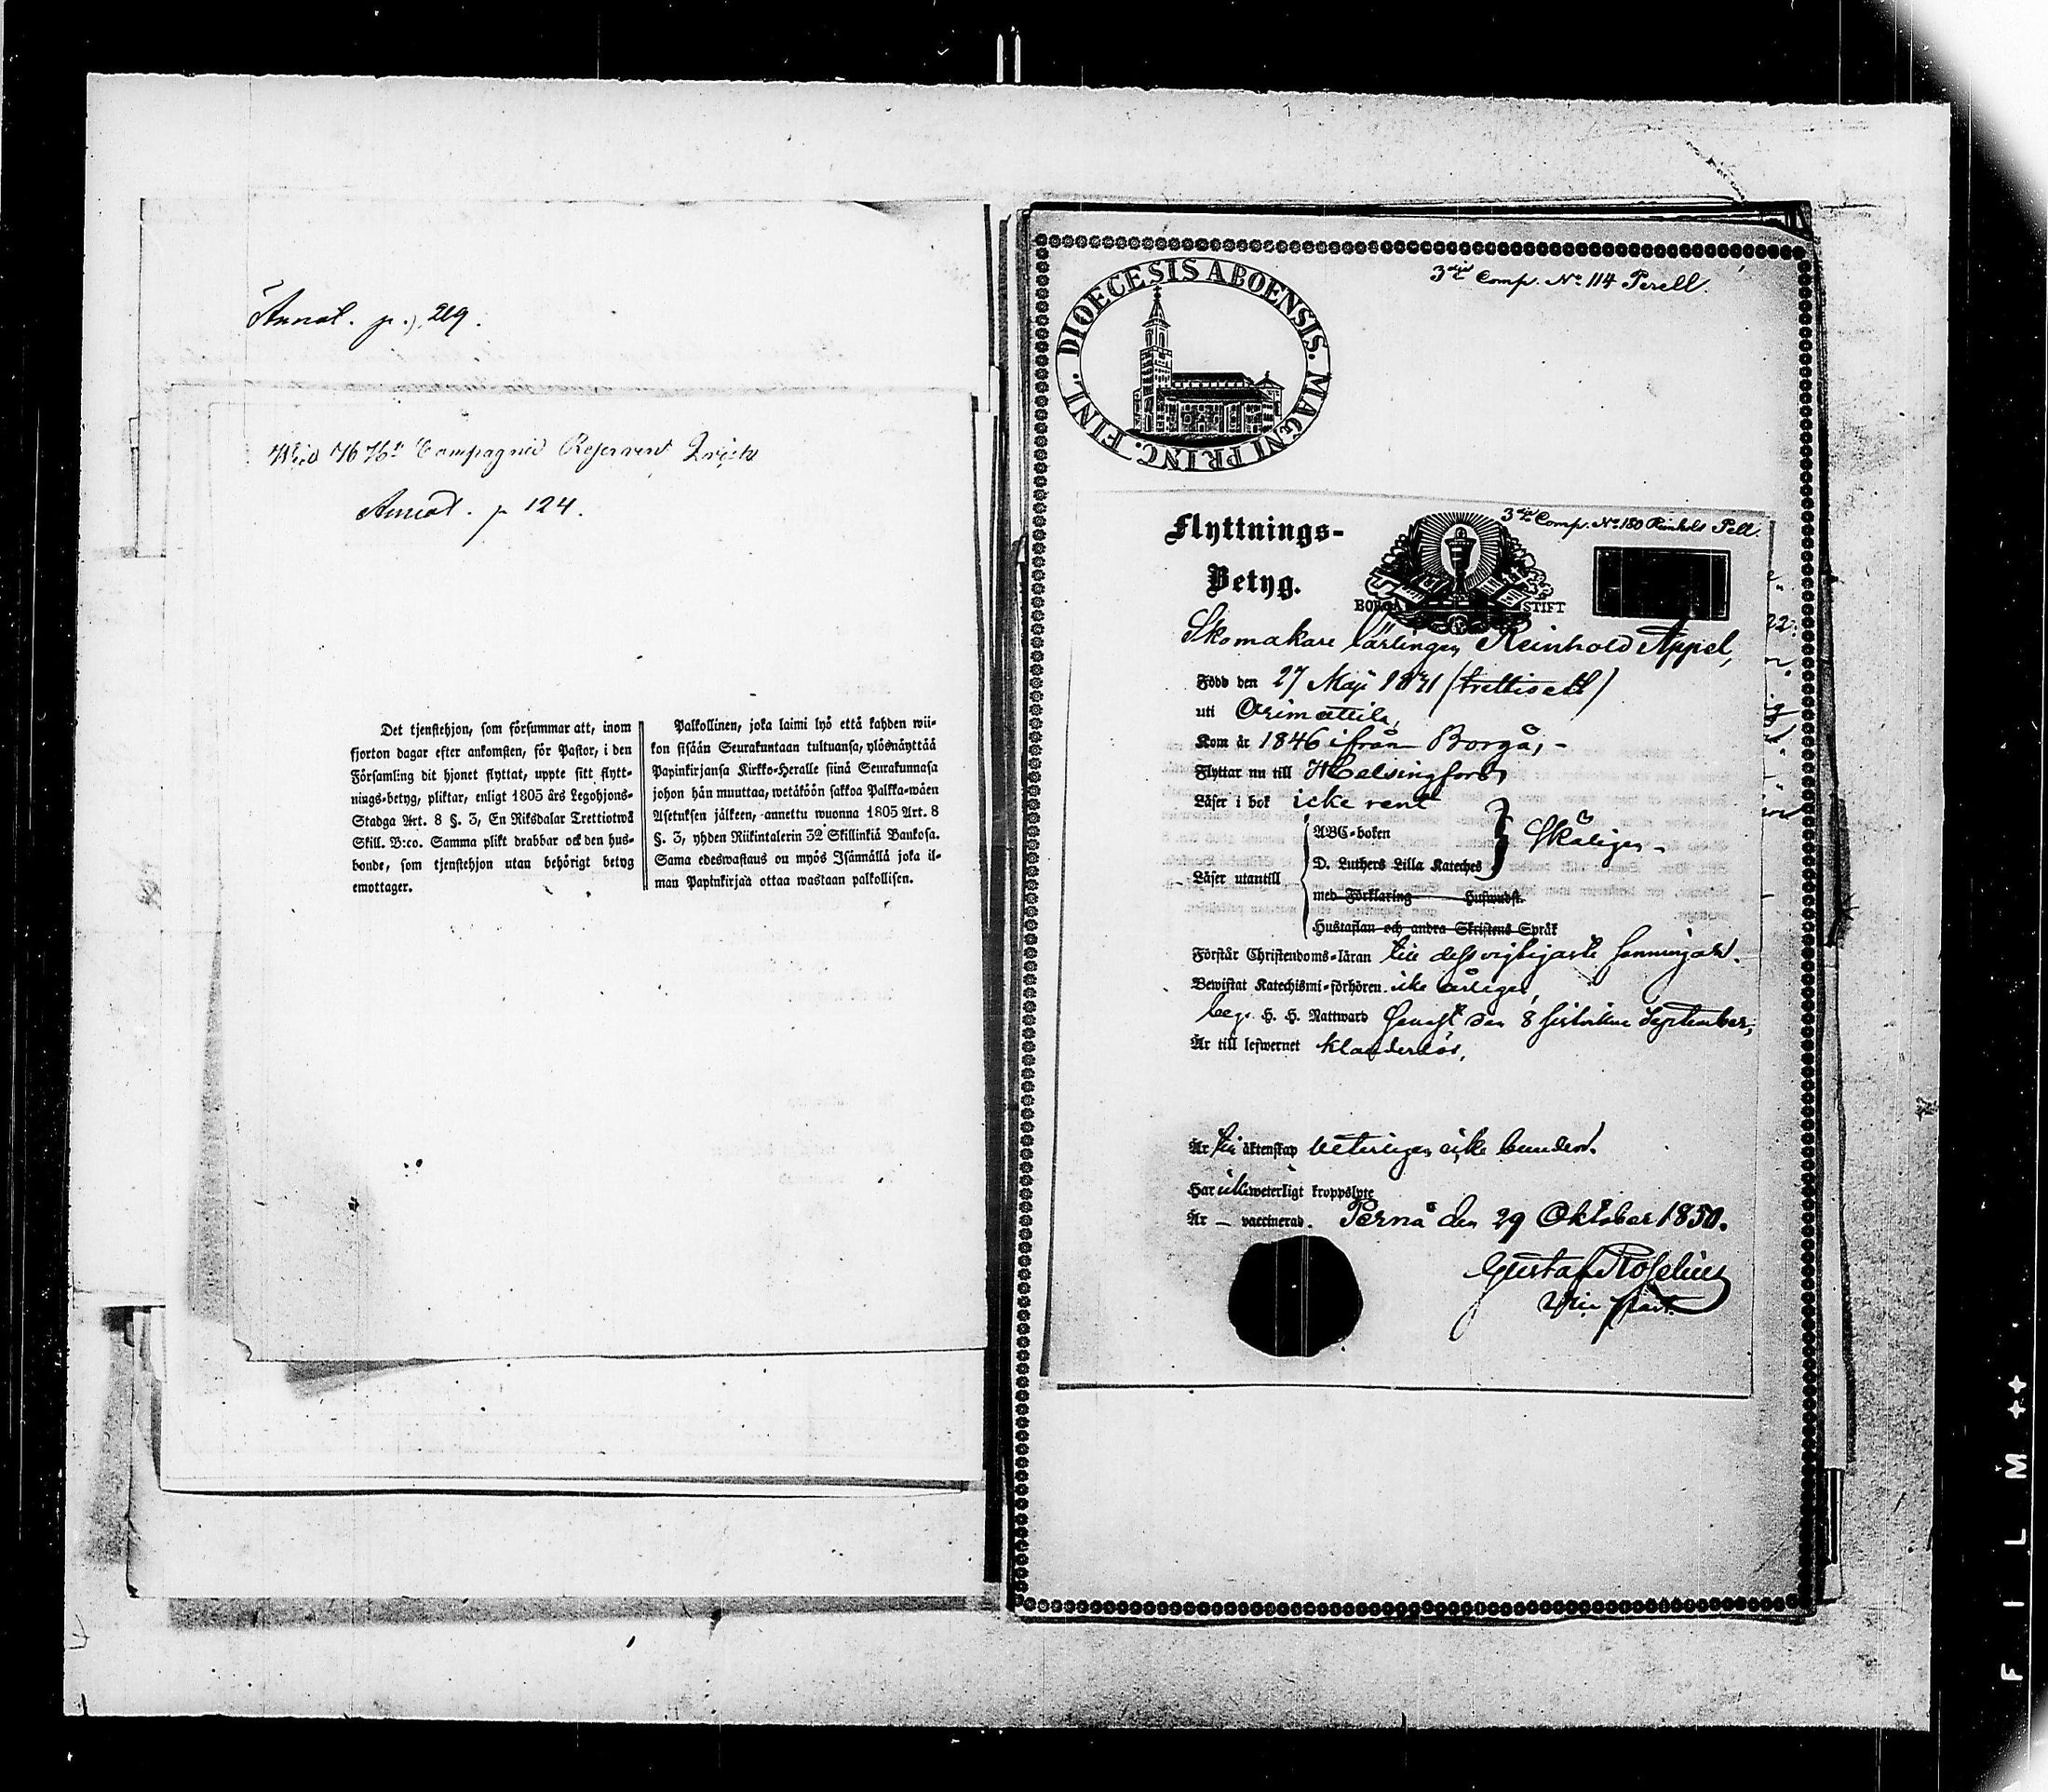 Annot. p. 219.
Wid Compagnie
Annot. p 124.
Det tjenstehjon, som försummar att, inom
fjorton dagar efter ankomsten, för Pastor, i den
Församling dit hjonet flyttat, uppte sitt flytt-
nings-betyg, pliktar, enligt 1805 års Legohjons-
Stadga Art. 8 §. 3, En Riksdalar Trettiotwå
Skill. B:co. Samma plikt drabbar ock den hus-
bonde, som tjenstehjon utan behörigt betyg
emottager.
Palkollinen, joka laimi lyö että kahden wii-
kon sisään Seurakuntaan tultuansa, ylösnäyttää
Papinkirjansa Kirkko-Herralle siinä Seurakunnasa
johon hän muuttaa, wetäköön sakkoa Palkka-wäen
Asetuksen jälkeen, annettu wuonna 1805 Art. 8
§. 3, yhden Riikintalerin 32 Skillinkiä Bankosa.
Sama edeswastaus on myös Isännällä joka il-
man Papinkirjaa ottaa wastaan palkollisen.
3dje Comp. No 114 Perell.
DIOECESIS ABOENSIS. MAGNI PRINC. FINL.
3dje Comp. No 180 Reinhold Pell
Flyttnings-
Betyg.
BORGÅ STIFT
Skomakare lärlingen Reinhold Appel,
Född den 27 Maji 1831 (trettioett)
uti Artimattila,
Kom år 1846 ifrån Borgå, -
Flyttar nu till Helsingfors,
Läser i bok icke rent
Läser utantill
ABC-boken
D. Luthers Lilla Kateches
Skäligen -
med Förklaring Huswudst.
Hustaflan och andra Skriftens Språk
Förstår Christendoms-läran till dess wigtigaste sanningar.
Bewistat Katechismi-förhören icke årligen,
beg. H. H. Nattward senast den 8 sistledne September,
Är till lefwernet klanderlös,
Är till äktenskap weterligen icke bunden.
Har icke weterligt kroppslyte
Är — vaccinerad. Pernå den 29 Oktober 1850.
Gustaf Roselius
Vice past.
FILM ++